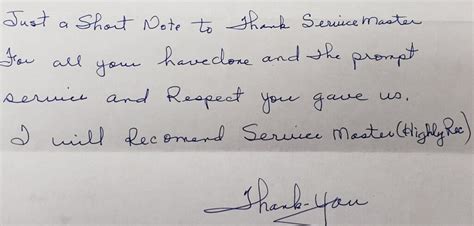 Just a Short Note to Thank Service Master
For all your have done and the prompt
service and Respect you gave us.
I will Recomend Service Master (Highly Rec)
Thank-You